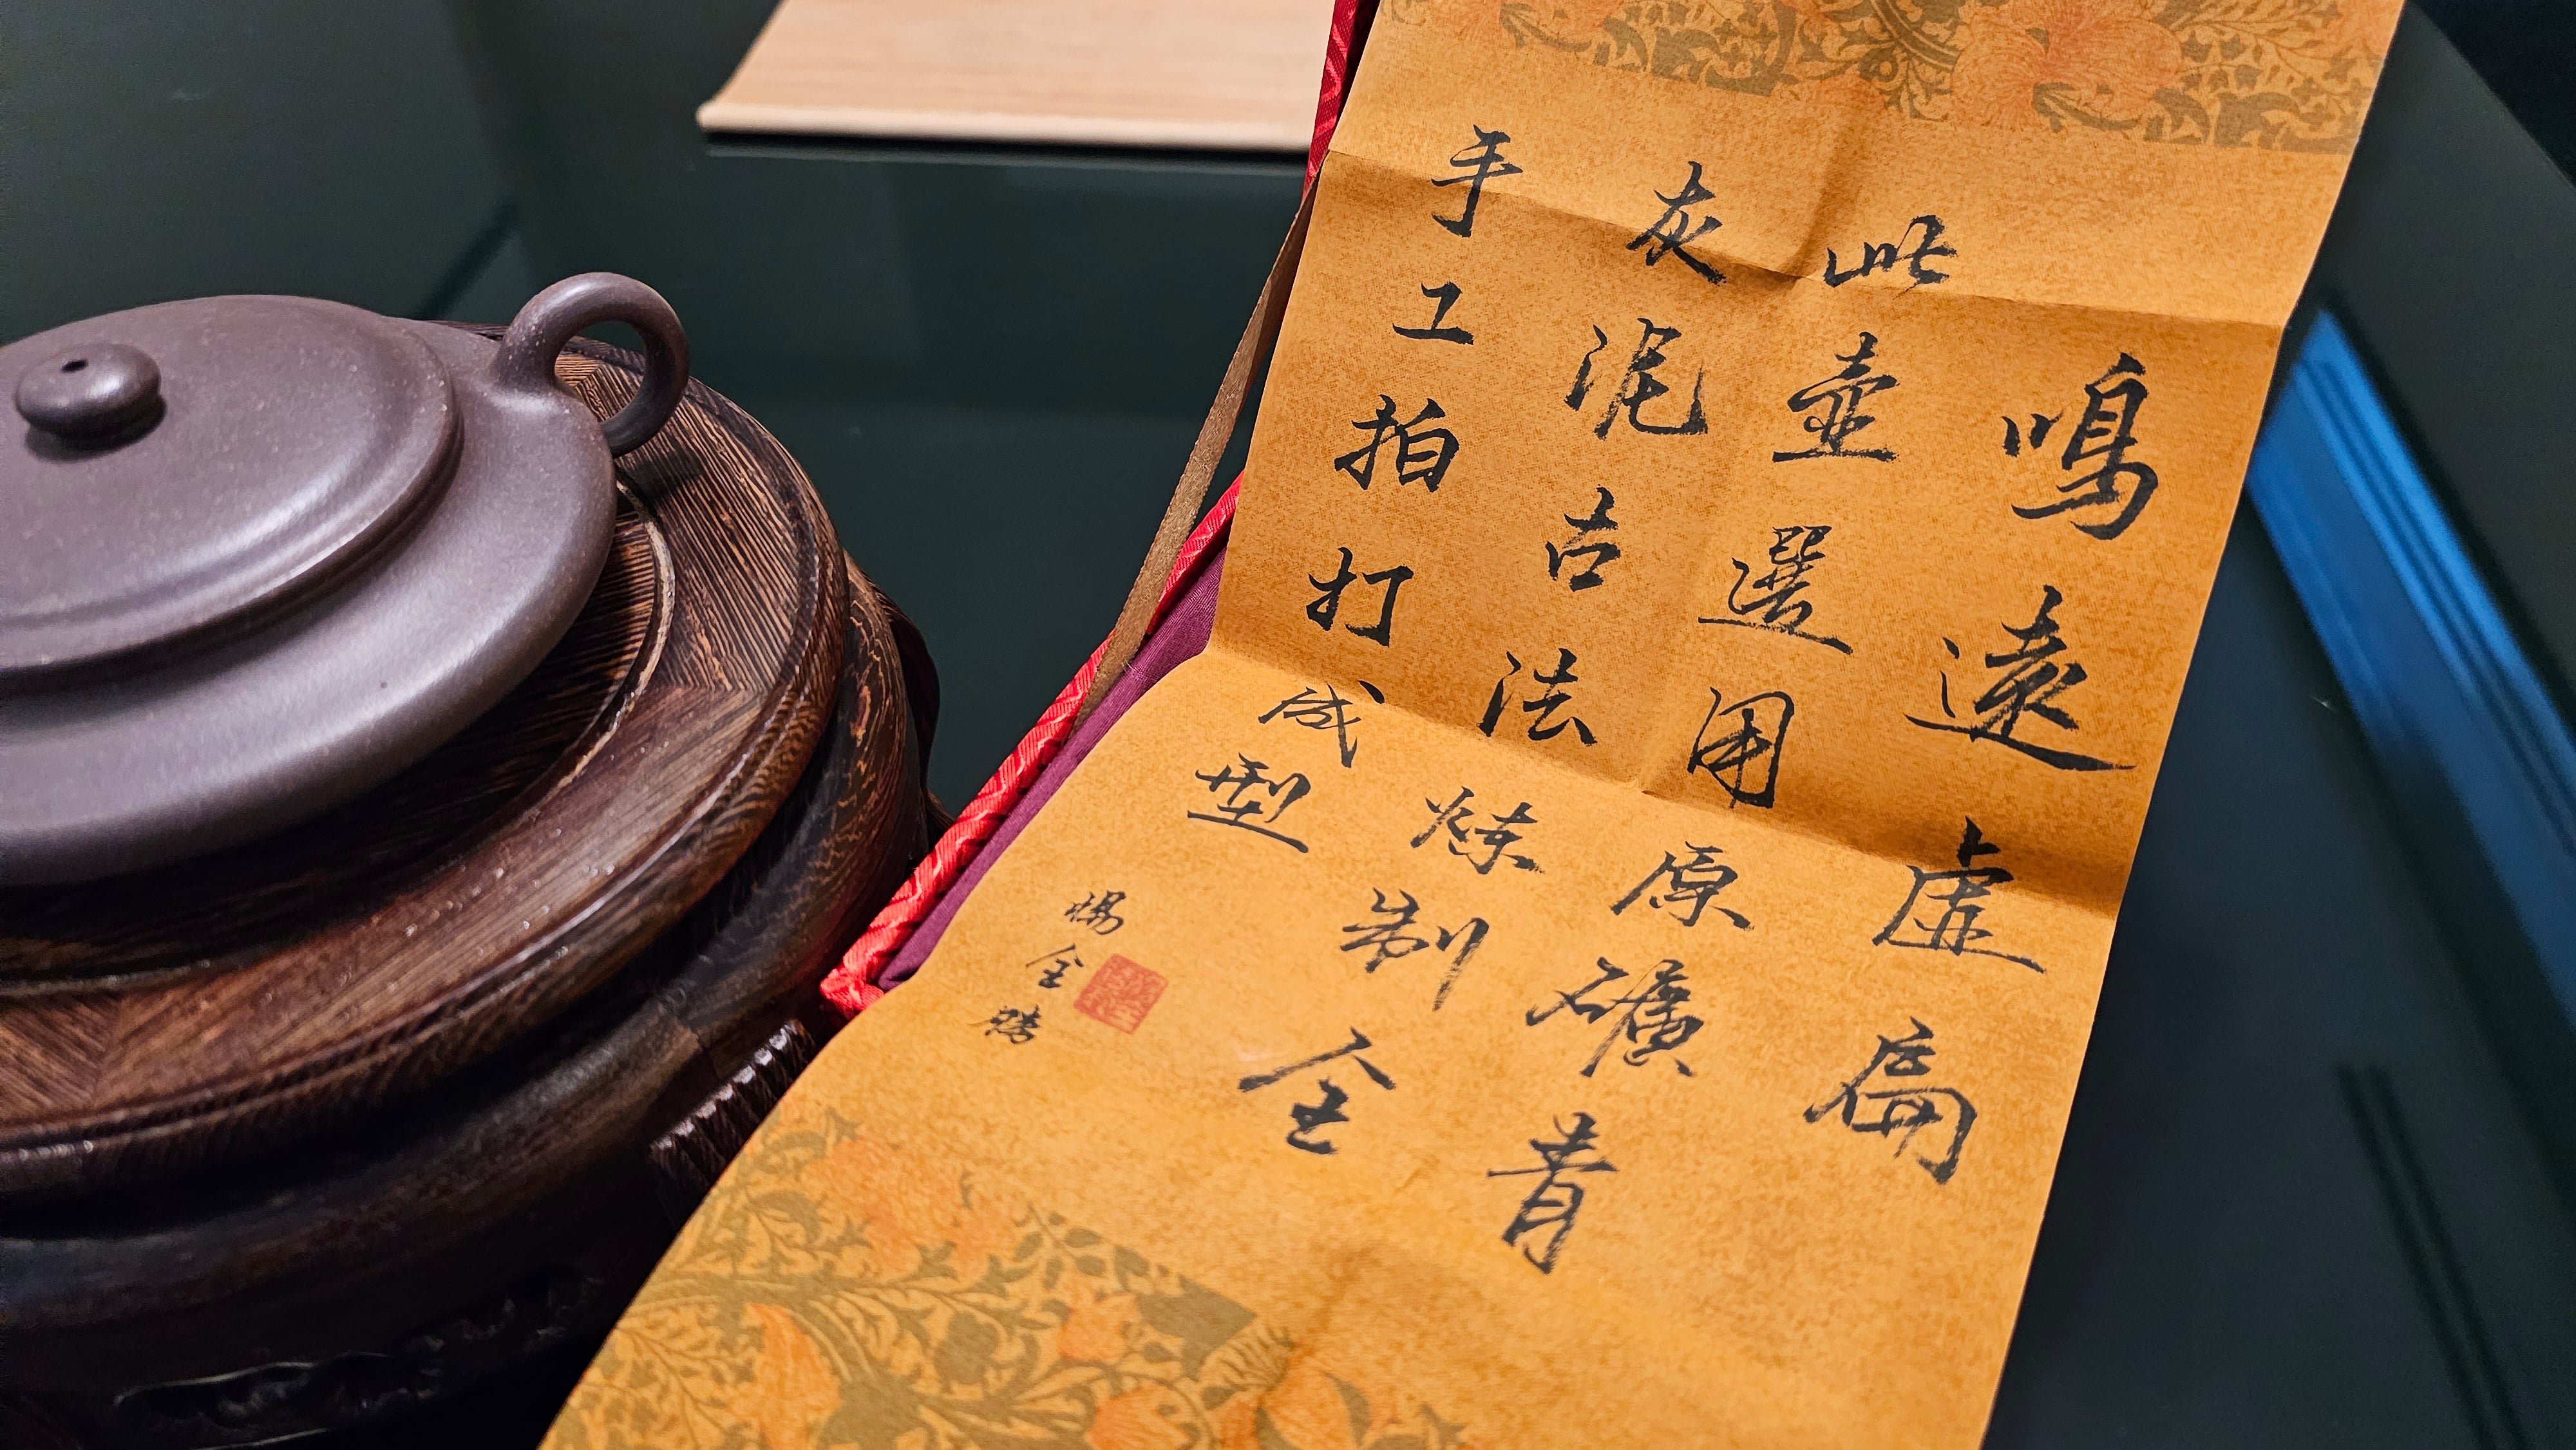 鳴遠虛扁
此壺選用原礦青
灰泥古法炼制全
手工拍打成型
楊全